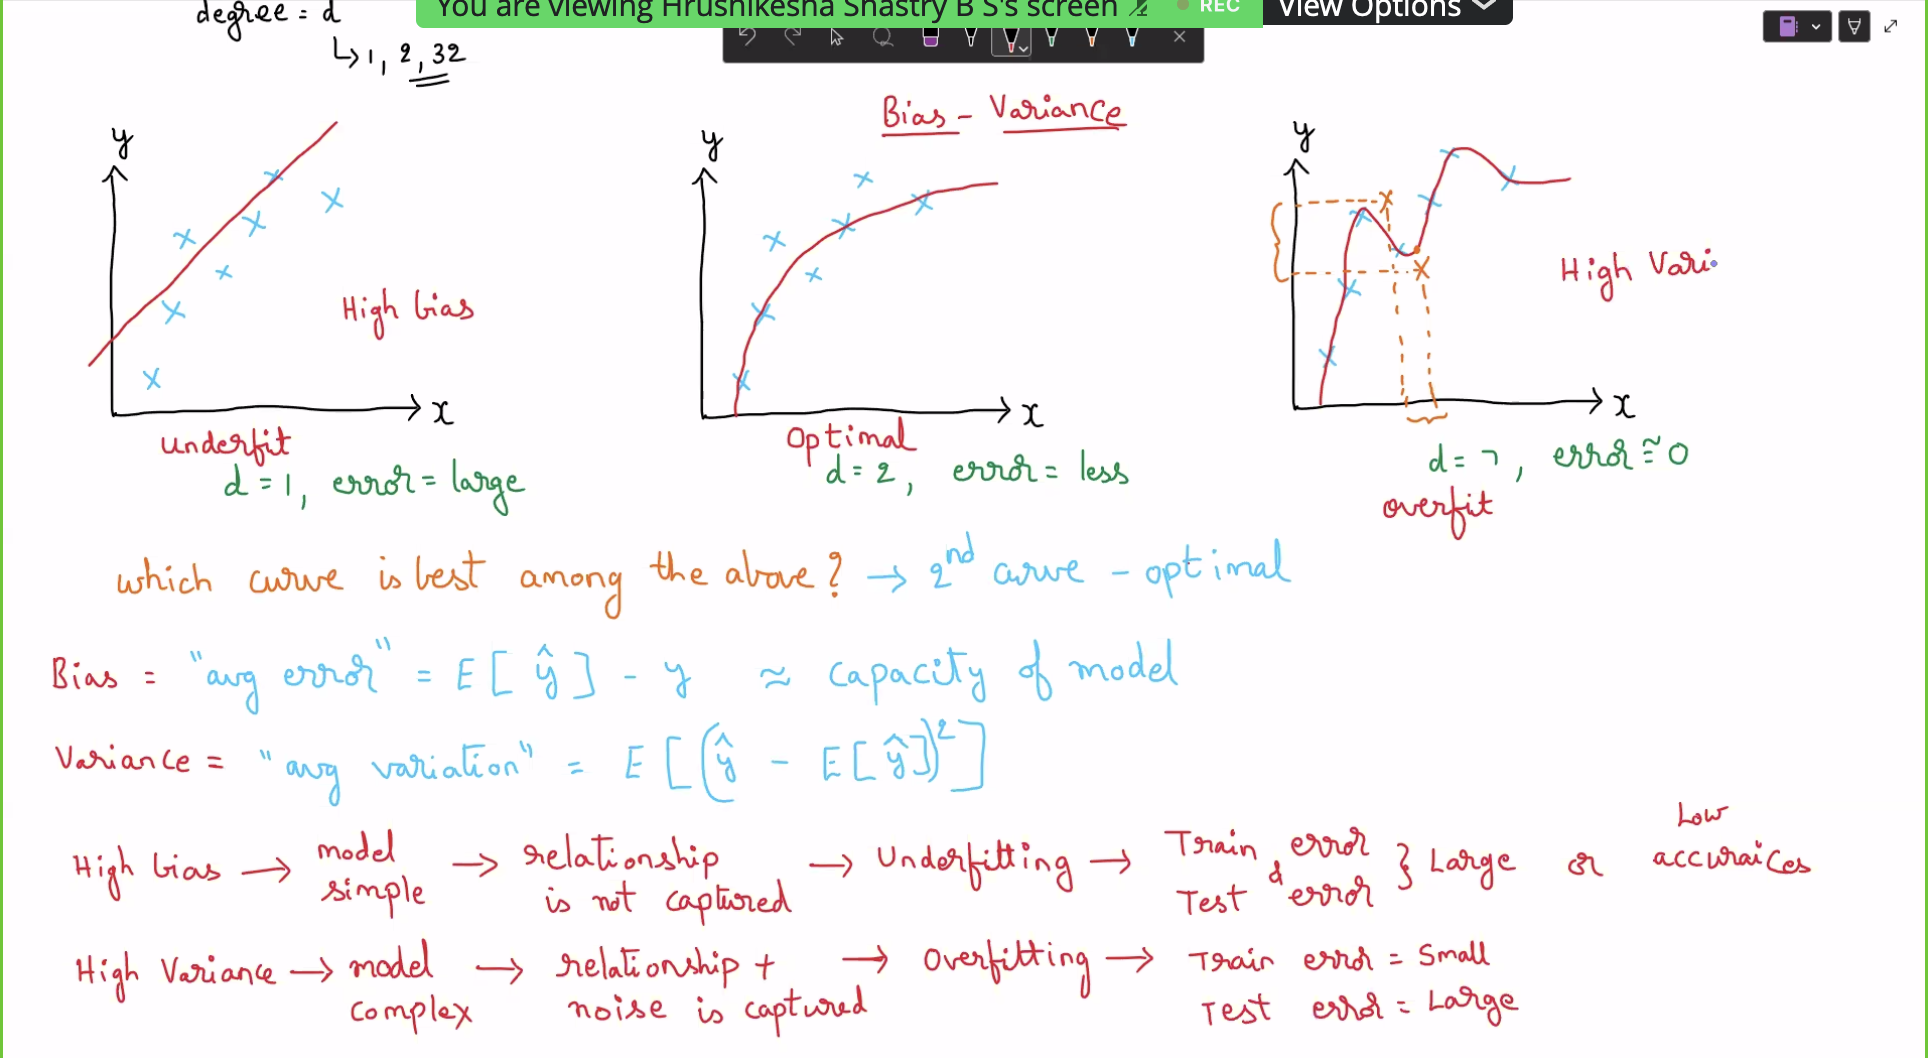 degree = d
↳ 1, 2, 32
You are viewing Hrushikesha Shastry B S's screen
REC
View Options
Bias - Variance
y
x
High bias
underfit
d = 1, error = large
y
x
Optimal
d = 2, error = less
y
x
High Vari
d = 7, error ≅ 0
overfit
which curve is best among the above? → 2nd curve - optimal
Bias = "avg error" = E[ŷ] - y ≈ capacity of model
Variance = "avg variation" = E[(ŷ - E[ŷ])²]
High bias → model simple → relationship is not captured → Underfitting → Train error & Test error } Large or Low accuraices
High Variance → model complex → relationship + noise is captured → Overfitting → Train error = Small
Test error = Large